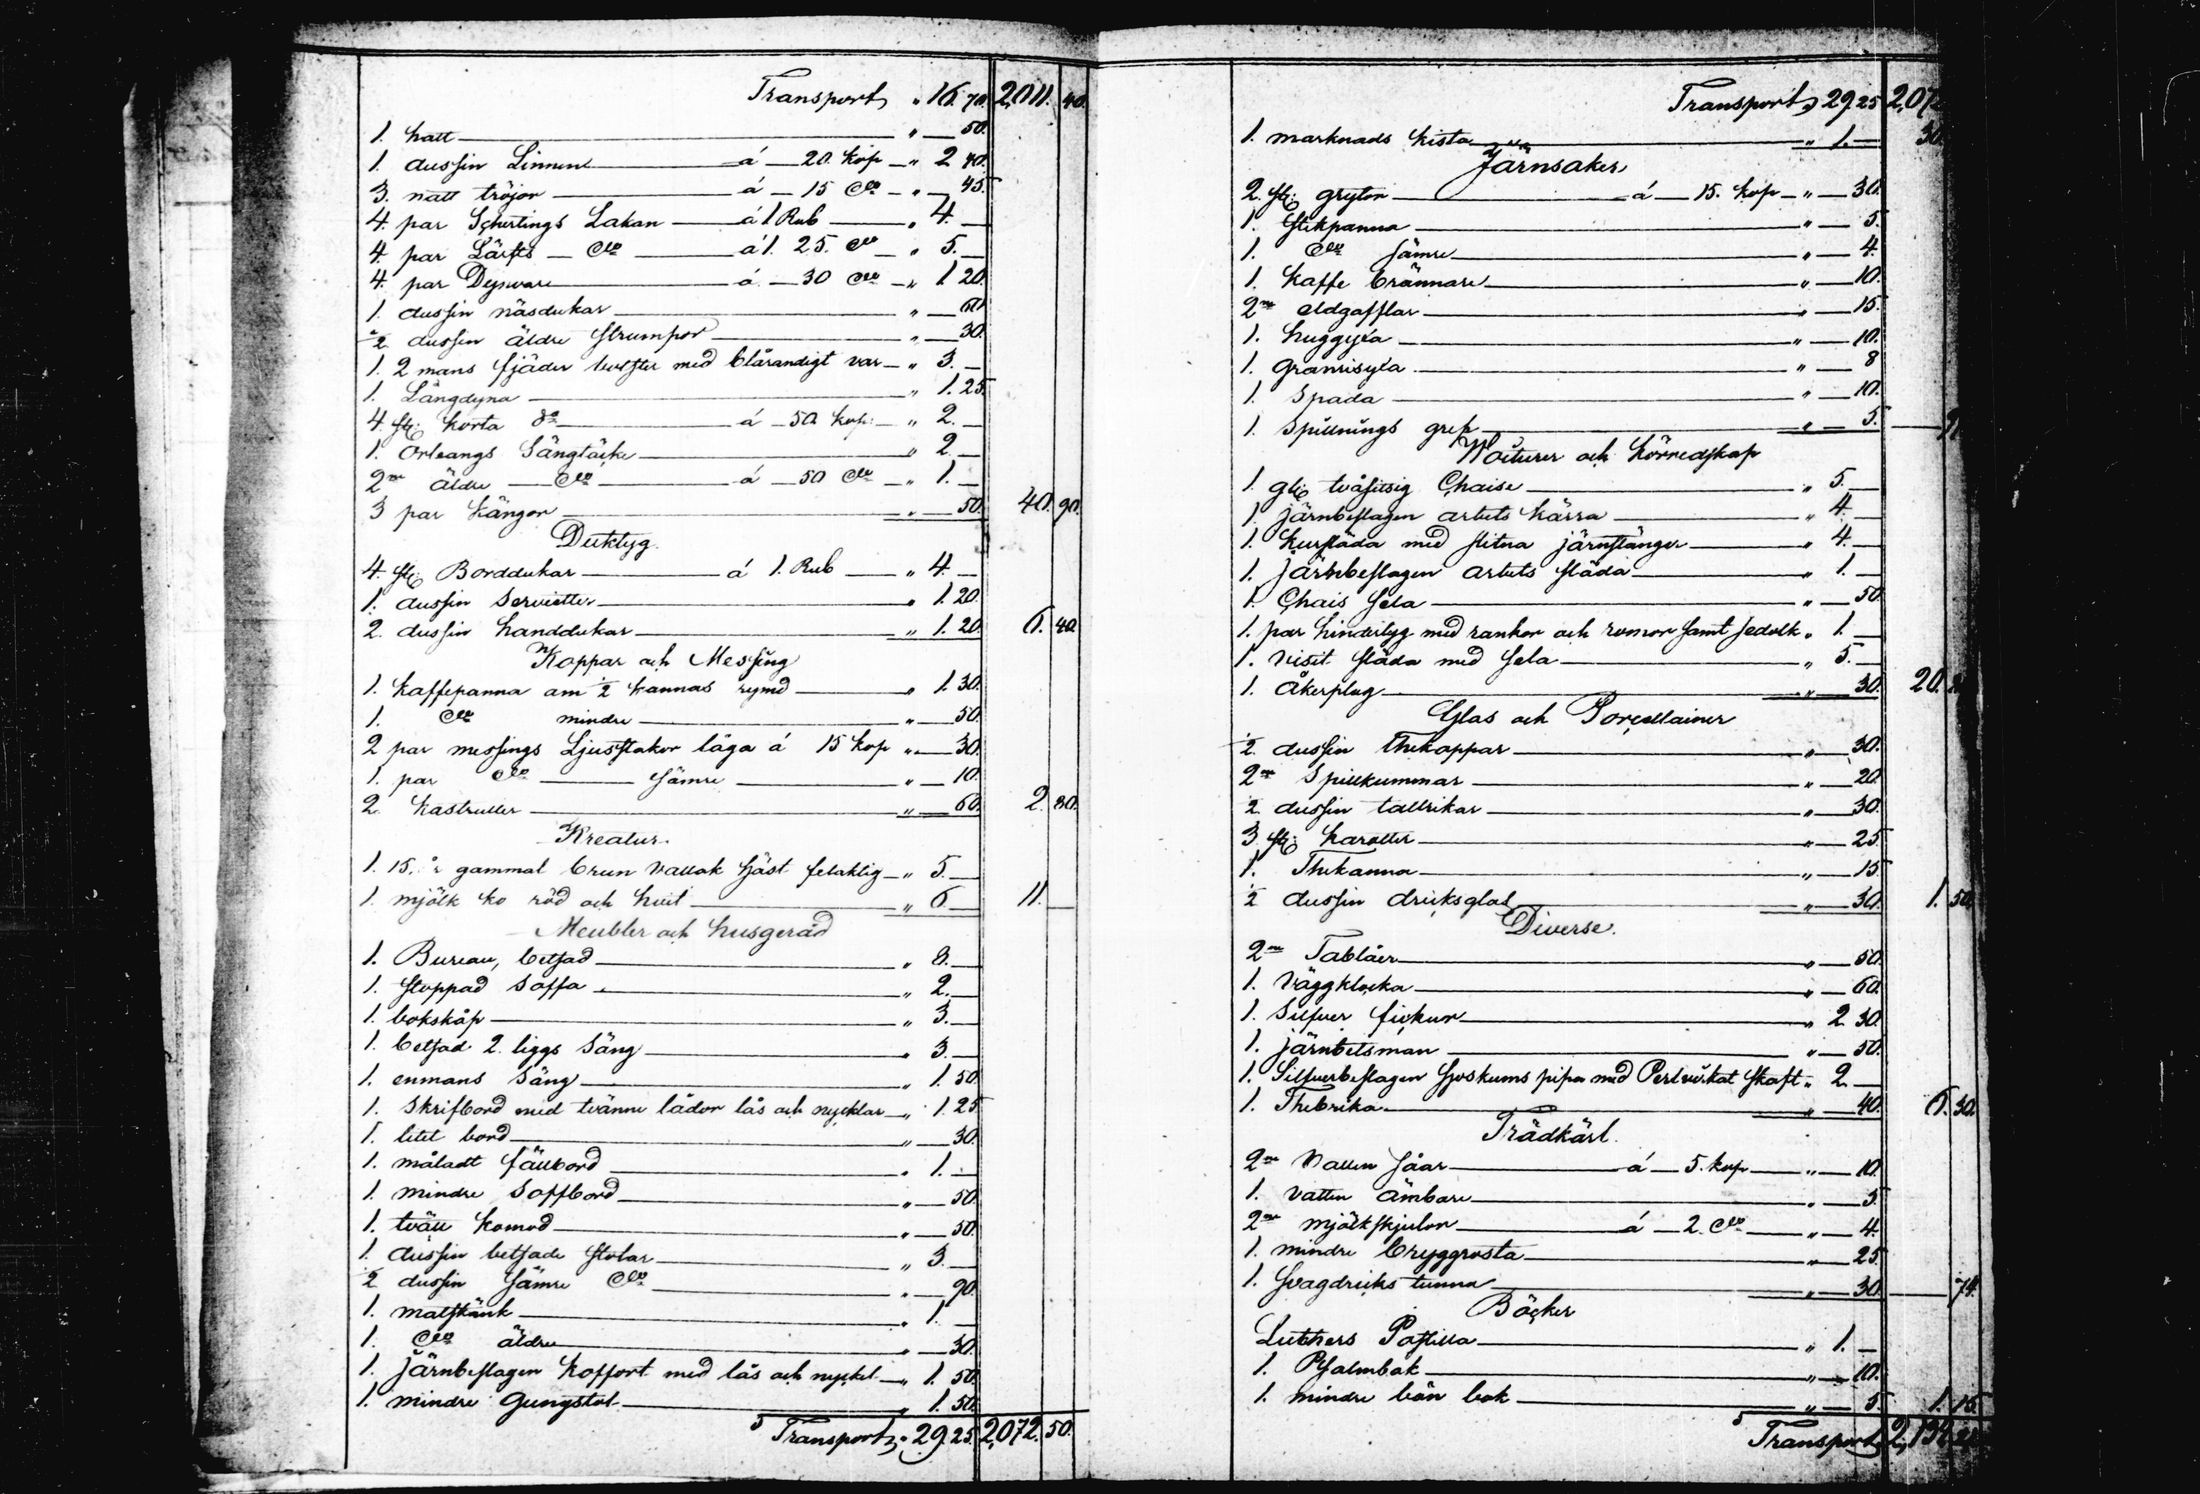 Transport " 16. 70. 2,011. 40.
1. hatt " 50.
1. dussin Linnen á 20. kop " 2 40.
3. natt tröjor á 15 do " 45.
4. par Schertings Lakan á 1 Rub " 4.
4. par Lärfts do á 1. 25. do " 5.
4. par Dynvare á 30 do " 1. 20.
1. dussin näsdukar " 60.
1/2 dussin äldre strumpor " 30.
1. 2 mans fjäder bolster med blårandigt var " 3.
1. Långdyna " 1. 25.
4. st: korta do á 50 kop: " 2.
1. Orleangs Sängtäcke " 2.
2ne äldre do á 50 do " 1.
3 par kängor " 50. 40. 90.
Duktyg.
4. st: Borddukar á 1. Rub " 4.
1. dussin Servietter " 1. 20.
2. dussin handdukar " 1. 20. 6. 40.
Koppar och Messing
1. kaffepanna am 1/2 kannas rymd " 1. 30.
1. do mindre " 50.
2 par messings Ljusstakor låga á 15 kop " 30.
1. par do sämre " 10.
2. kastruller " 60. 2. 80.
Kreatur.
1. 15. år gammal brun vallak häst felaktig " 5.
1. mjölk ko röd och hvit " 6. 11.
Meubler och husgeråd
1. Bureau, betsad " 8.
1. stoppad soffa " 2.
1. bokskåp " 3.
1. betsad 2. liggs säng " 3.
1. enmans säng " 1. 50.
1. skrifbord med tvänne lådor lås och nycklar " 1. 25
1. litet bord " 30.
1. måladt fällbord " 1.
1. mindre soffbord " 50.
1. tvätt komod " 50.
1. dussin betsade stolar " 3.
1/2 dussin sämre do " 90.
1. matskänk " 1.
1. do äldre " 30.
1. järnbeslagen koffort med lås och nyckel " 1. 50.
1. mindre gungstol " 1. 50.
Transport " 29. 25. 2,072. 50.
Transport " 29 25 2,07
1. marknads kista " 1. 30
Järnsaker
2. st: grytor á 15. kop " 30.
1. stekpanna " 5.
1. do sämre " 4.
1. kaffe brännare " 10.
2ne eldgafflar " 15.
1. huggyxa " 10.
1. granrisyxa " 8
1. spada " 10.
1. spillnings grep " 5.
Woiturer och körredskap
1. gl: tvåsitsig Chaise " 5.
1. järnbeslagen arbets kärra " 4.
1. kursläda med slitna järnstänger " 4.
1. järnbeslagen arbets släda " 1.
1. Chais sela " 50
1. par hindertyg med rankor och remor samt sedolk " 1.
1. visit släda med sela " 5.
1. åkerplog " 30. 20.
Glas och Porcellainer
1/2 dussin thekoppar " 30.
2ne spillkummar " 20.
1/2 dussin tallrikar " 30.
3 st: karotter " 25
1. Thekanna " 15
1/2 dussin dricksglas " 30. 1. 50.
Diverse.
2ne Tablåer " 50.
1. väggklocka " 60.
1. silfver fickur " 2. 30.
1. järnbetsman " 50.
1. Silfverbeslagen sjöskums pipa med Perlvirkat skaft " 2.
1. Thebrika " 40. 6. 30.
Trädkärl.
2ne Vatten såar á 5. kop " 10.
1. vatten ämbare " 5.
2ne mjölkskjulor á 2. do " 4.
1. mindre bryggrosta " 25.
1. svagdricks tunna " 30. 74.
Böcker
Luthers Postilla " 1.
1. Psalmbok " 10.
1. mindre bön bok " 5. 1. 15.
Transport 2,132.